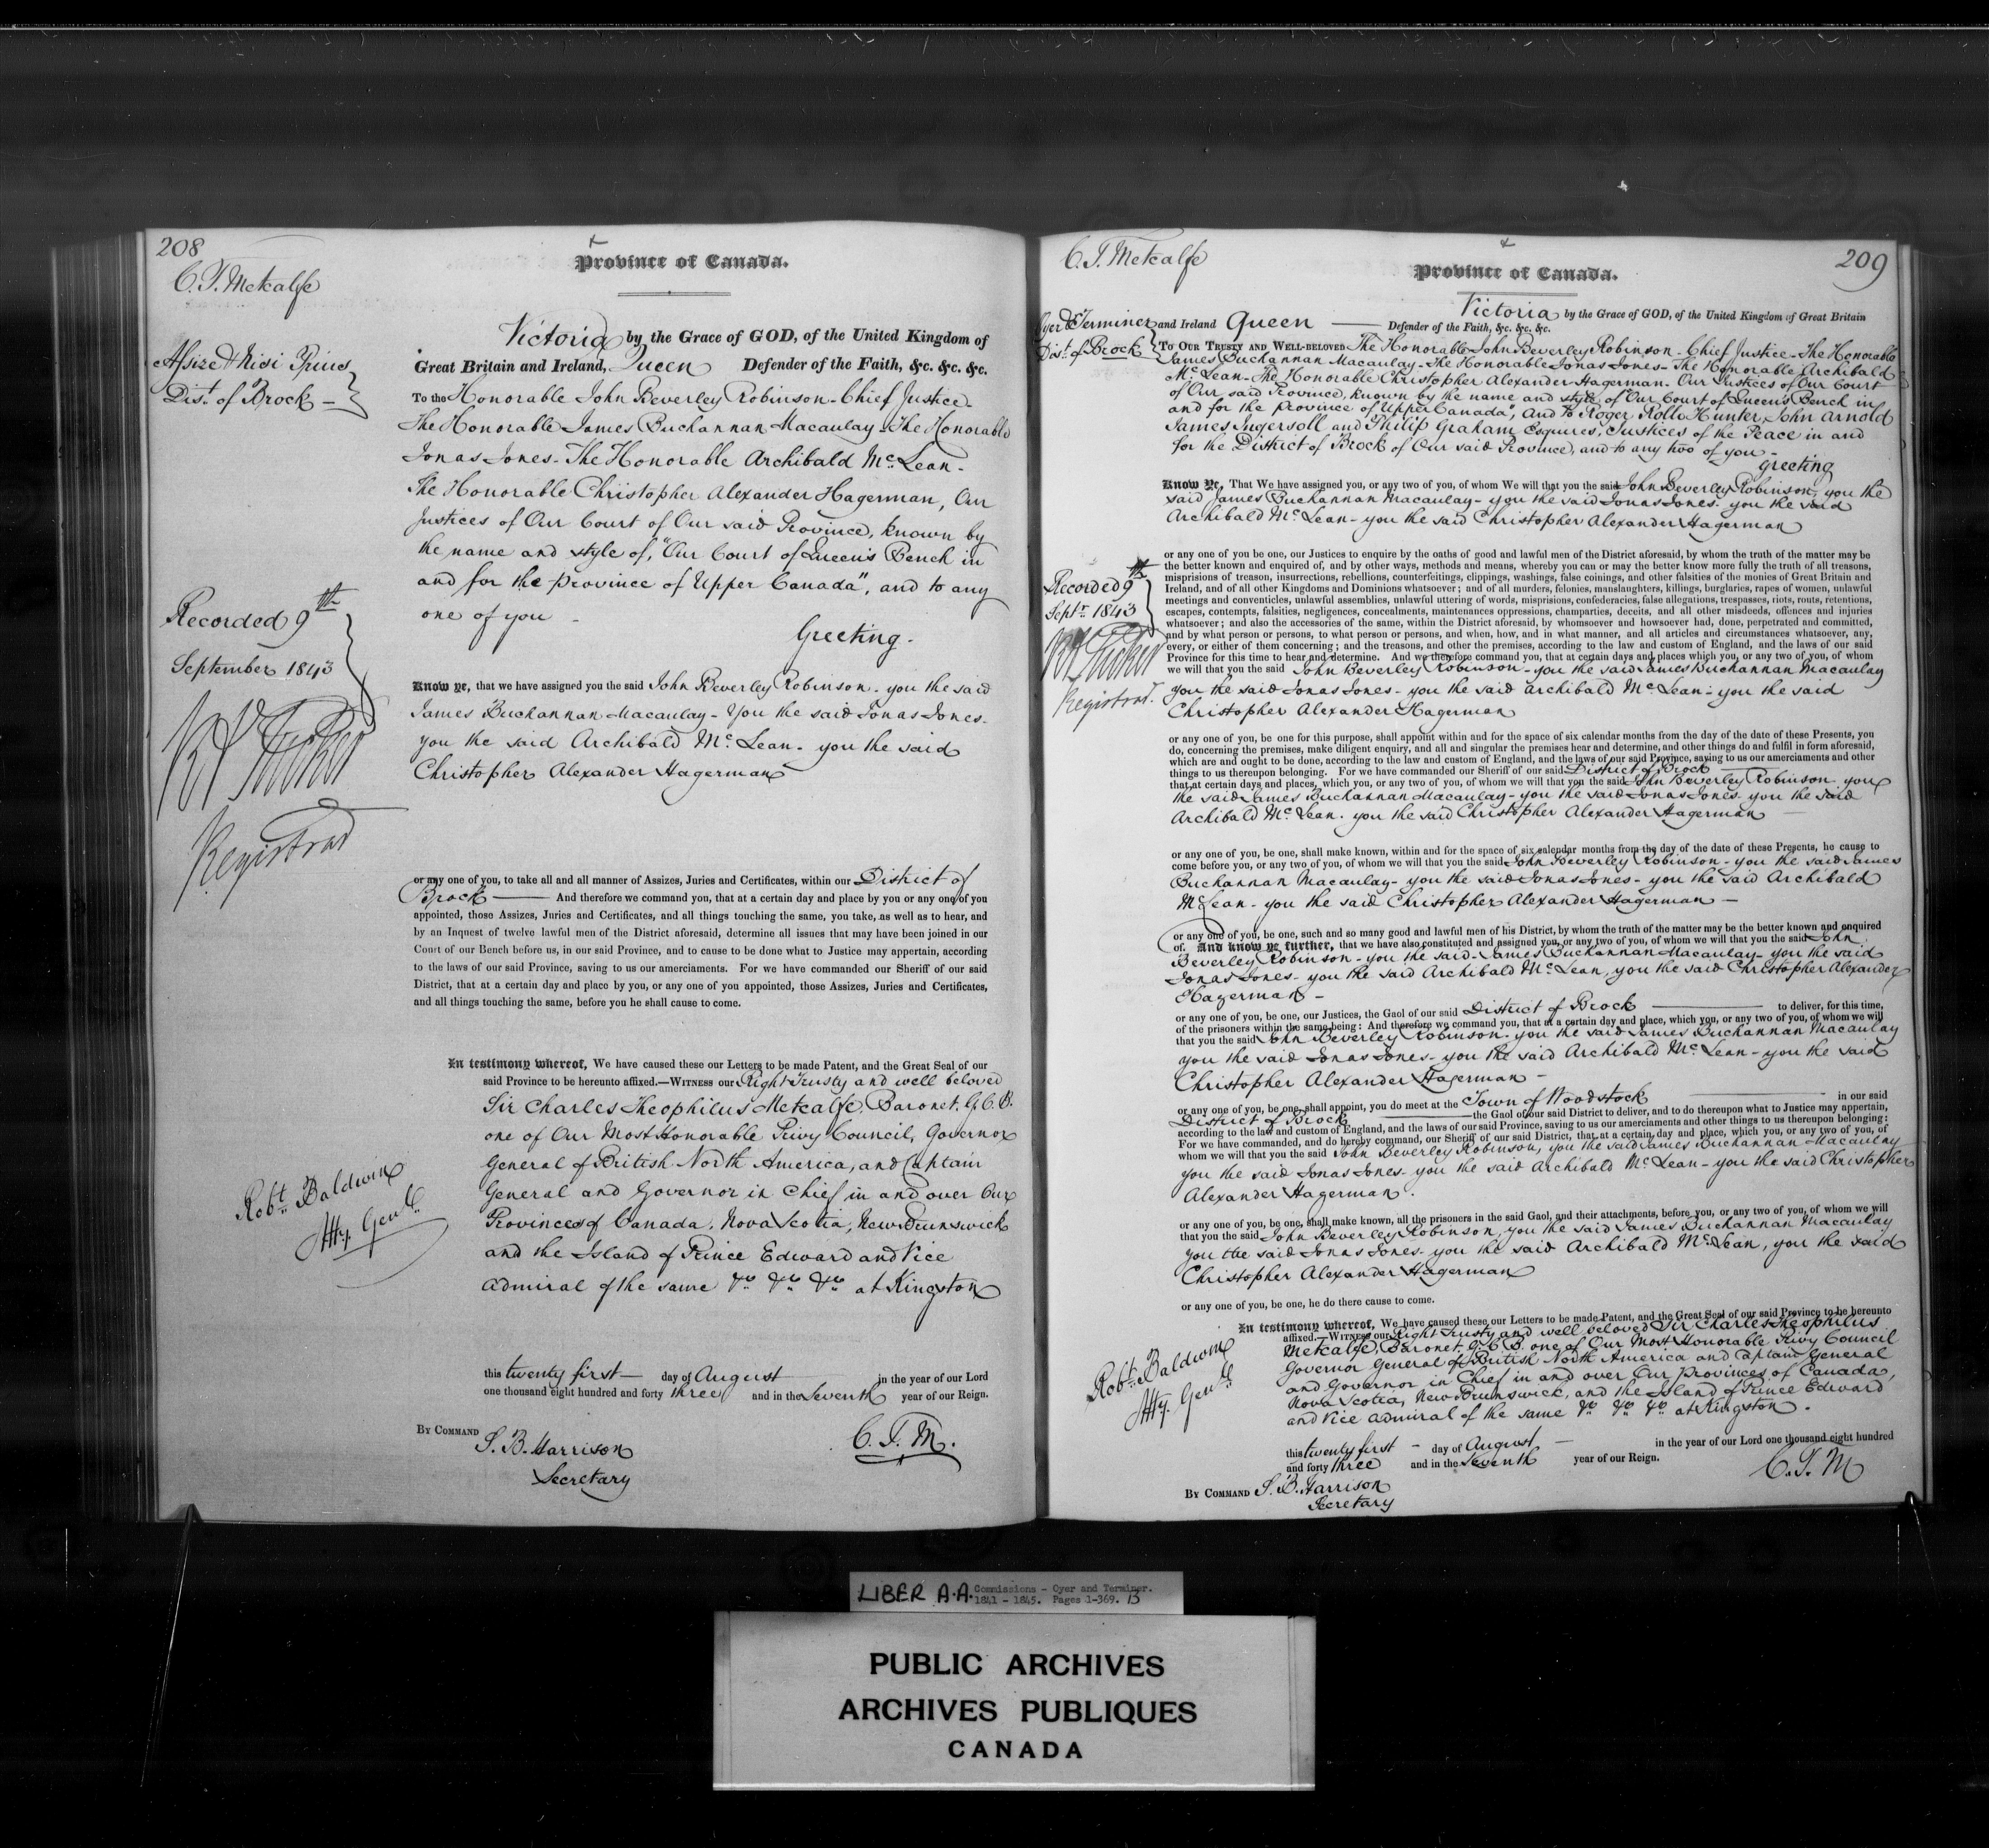 208
C. T. Metcalfe
Province of Canada.
Assize & Nisi Prius
Dist. of Brock
Victoria by the Grace of GOD, of the United Kingdom of
Great Britain and Ireland, Queen Defender of the Faith, &c. &c. &c.
To the Honorable John Beverley Robinson - Chief Justice -
The Honorable James Buchannan Macaulay - The Honorable
Jonas Jones - The Honorable Archibald Mc. Lean -
The Honorable Christopher Alexander Hagerman, Our
Justices of Our Court of Our said Province, known by
the name and style of, "Our Court of Queen's Bench in
and for the Province of Upper Canada", and to any
one of you -
Greeting -
Recorded 9th
September 1843
Registrar
Know ye, that we have assigned you the said John Beverley Robinson - you the said
James Buchannan Macaulay - You the said Jonas Jones -
you the said Archibald Mc. Lean - you the said
Christopher Alexander Hagerman
or any one of you, to take all and all manner of Assizes, Juries and Certificates, within our District of
Brock — And therefore we command you, that at a certain day and place by you or any one of you
appointed, those Assizes, Juries and Certificates, and all things touching the same, you take, as well as to hear, and
by an Inquest of twelve lawful men of the District aforesaid, determine all issues that may have been joined in our
Court of our Bench before us, in our said Province, and to cause to be done what to Justice may appertain, according
to the laws of our said Province, saving to us our amerciaments. For we have commanded our Sheriff of our said
District, that at a certain day and place by you, or any one of you appointed, those Assizes, Juries and Certificates,
and all things touching the same, before you he shall cause to come.
In testimony whereof, We have caused these our Letters to be made Patent, and the Great Seal of our
said Province to be hereunto affixed.—WITNESS our Right Trusty and well beloved
Sir Charles Theophilus Metcalfe, Baronet, G.C.B.
one of Our Most Honorable Privy Council, Governor
General of British North America, and Captain
General and Governor in Chief in and over Our
Provinces of Canada, Nova Scotia, New Brunswick
and the Island of Prince Edward and Vice
Admiral of the same &c &c &c at Kingston
Robt. Baldwin
Atty. Genl.
this twenty first — day of August in the year of our Lord
one thousand eight hundred and forty three and in the Seventh year of our Reign.
BY COMMAND
S. B. Harrison
Secretary
C. T. M.
C. T. Metcalfe
209
Province of Canada.
Oyer & Terminer
Dist. of Brock
Victoria by the Grace of GOD, of the United Kingdom of Great Britain
and Ireland Queen — Defender of the Faith, &c. &c. &c.
TO OUR TRUSTY AND WELL-BELOVED The Honorable John Beverley Robinson - Chief Justice - The Honorable
James Buchannan Macaulay - The Honorable Jonas Jones - The Honorable Archibald
Mc. Lean - The Honorable Christopher Alexander Hagerman - Our Justices of Our Court
of Our said Province, known by the name and style of Our Court of Queen's Bench in
and for the Province of Upper Canada", And to Roger Rollo Hunter, John Arnold
James Ingersoll and Philip Graham Esquires, Justices of the Peace in and
for the District of Brock of Our said Province, and to any two of you -
Greeting
Know Ye, That We have assigned you, or any two of you, of whom We will that you the said John Beverley Robinson, you the
said James Buchannan Macaulay - you the said Jonas Jones - you the said
Archibald Mc. Lean - you the said Christopher Alexander Hagerman
Recorded 9th
Septr. 1843
Registrar.
or any one of you be one, our Justices to enquire by the oaths of good and lawful men of the District aforesaid, by whom the truth of the matter may be
the better known and enquired of, and by other ways, methods and means, whereby you can or may the better know more fully the truth of all treasons,
misprisions of treason, insurrections, rebellions, counterfeitings, clippings, washings, false coinings, and other falsities of the monies of Great Britain and
Ireland, and of all other Kingdoms and Dominions whatsoever; and of all murders, felonies, manslaughters, killings, burglaries, rapes of women, unlawful
meetings and conventicles, unlawful assemblies, unlawful uttering of words, misprisions, confederacies, false allegations, trespasses, riots, routs, retentions,
escapes, contempts, falsities, negligences, concealments, maintenances oppressions, champarties, deceits, and all other misdeeds, offences and injuries
whatsoever; and also the accessories of the same, within the District aforesaid, by whomsoever and howsoever had, done, perpetrated and committed,
and by what person or persons, to what person or persons, and when, how, and in what manner, and all articles and circumstances whatsoever, any,
every, or either of them concerning; and the treasons, and other the premises, according to the law and custom of England, and the laws of our said
Province for this time to hear and determine. And we therefore command you, that at certain days and places which you, or any two of you, of whom
we will that you the said John Beverley Robinson - you the said James Buchannan Macaulay
you the said Jonas Jones - you the said Archibald Mc. Lean - you the said
Christopher Alexander Hagerman
or any one of you, be one for this purpose, shall appoint within and for the space of six calendar months from the day of the date of these Presents, you
do, concerning the premises, make diligent enquiry, and all and singular the premises hear and determine, and other things do and fulfil in form aforesaid,
which are and ought to be done, according to the law and custom of England, and the laws of our said Province, saving to us our amerciaments and other
things to us thereupon belonging. For we have commanded our Sheriff of our said District of Brock
that at certain days and places, which you, or any two of you, of whom we will that you the said John Beverley Robinson - you
the said James Buchannan Macaulay - you the said Jonas Jones - you the said
Archibald Mc. Lean - you the said Christopher Alexander Hagerman
or any one of you, be one, shall make known, within and for the space of six calendar months from the day of the date of these Presents, he cause to
come before you, or any two of you, of whom we will that you the said John Beverley Robinson - you the said James
Buchannan Macaulay - you the said Jonas Jones - you the said Archibald
McLean - you the said Christopher Alexander Hagerman —
or any one of you, be one, such and so many good and lawful men of his District, by whom the truth of the matter may be the better known and enquired
of. And know ye further, that we have also constituted and assigned you, or any two of you, of whom we will that you the said John
Beverley Robinson - you the said - James Buchannan Macaulay - you the said
Jonas Jones - you the said Archibald Mc. Lean, you the said Christopher Alexander
Hagerman -
or any one of you, be one, our Justices, the Gaol of our said District of Brock — to deliver, for this time,
of the prisoners within the same being: And therefore we command you, that at a certain day and place, which you, or any two of you, of whom we will
that you the said John Beverley Robinson - you the said James Buchannan Macaulay
you the said Jonas Jones - you the said Archibald Mc. Lean - you the said
Christopher Alexander Hagerman -
or any one of you, be one, shall appoint, you do meet at the Town of Woodstock — in our said
District of Brock — the Gaol of our said District to deliver, and to do thereupon what to Justice may appertain,
according to the law and custom of England, and the laws of our said Province, saving to us our amerciaments and other things to us thereupon belonging:
For we have commanded, and do hereby command, our Sheriff of our said District, that at a certain day and place, which you, or any two of you, of
whom we will that you the said John Beverley Robinson, you the said James Buchannan Macaulay
you the said Jonas Jones - you the said Archibald Mc. Lean - you the said Christopher
Alexander Hagerman.
or any one of you, be one, shall make known, all the prisoners in the said Gaol, and their attachments, before you, or any two of you, of whom we will
that you the said John Beverley Robinson, you the said James Buchannan Macaulay
you the said Jonas Jones - you the said Archibald Mc. Lean, you the said
Christopher Alexander Hagerman
or any one of you, be one, he do there cause to come.
In testimony whereof, We have caused these our Letters to be made Patent, and the Great Seal of our said Province to be hereunto
affixed.—WITNESS our Right Trusty and well beloved Sir Charles Theophilus
Metcalfe, Baronet, G.C.B. one of Our Most Honorable Privy Council
Governor General of British North America and Captain General
and Governor in Chief in and over Our Provinces of Canada,
Nova Scotia, New Brunswick, and the Island of Prince Edward
and Vice Admiral of the same &c &c &c at Kingston.
Robt. Baldwin
Atty. Genl.
this twenty first - day of August — in the year of our Lord one thousand eight hundred
and forty three and in the Seventh year of our Reign.
C. T. M
BY COMMAND S. B. Harrison
Secretary
LIBER A.A. Commissions - Oyer and Terminer.
1841 - 1845. Pages 1-369. B
PUBLIC ARCHIVES
ARCHIVES PUBLIQUES
CANADA